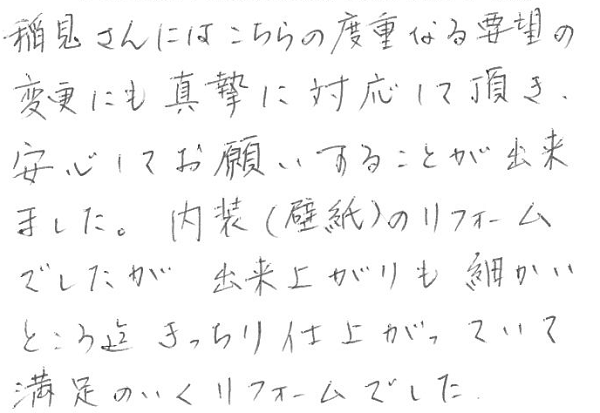 稲見さんにはこちらの度重なる要望の
変更にも真摯に対応して頂き、
安心してお願いすることが出来
ました。内装(壁紙)のリフォーム
でしたが 出来上がりも細かい
ところ迄きっちり仕上がっていて
満足のいくリフォームでした.